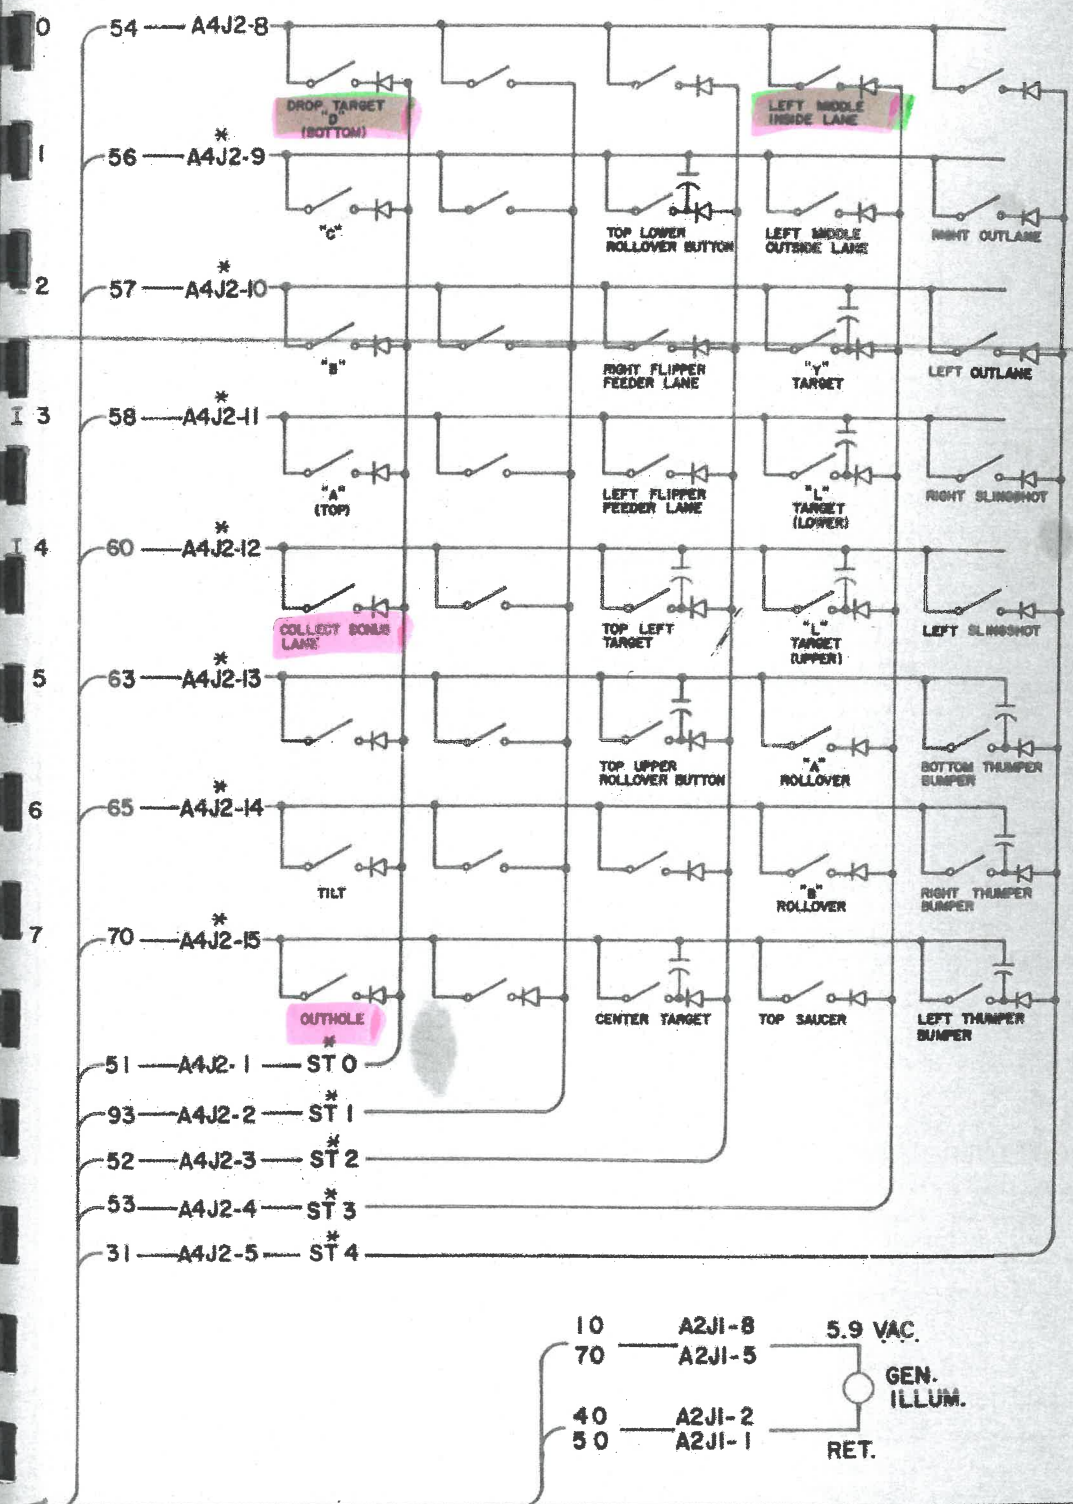 0 54 A4J2-8
DROP TARGET
"D"
(BOTTOM)
LEFT MIDDLE
INSIDE LANE
*
1 56 A4J2-9
"C"
TOP LOWER
ROLLOVER BUTTON
LEFT MIDDLE
OUTSIDE LANE
RIGHT OUTLANE
*
2 57 A4J2-10
"B"
RIGHT FLIPPER
FEEDER LANE
"Y"
TARGET
LEFT OUTLANE
*
I 3 58 A4J2-11
"A"
(TOP)
LEFT FLIPPER
FEEDER LANE
"L"
TARGET
(LOWER)
RIGHT SLINGSHOT
*
I 4 60 A4J2-12
COLLECT BONUS
LANE
TOP LEFT
TARGET
"L"
TARGET
(UPPER)
LEFT SLINGSHOT
*
5 63 A4J2-13
TOP UPPER
ROLLOVER BUTTON
"A"
ROLLOVER
BOTTOM THUMPER
BUMPER
*
6 65 A4J2-14
TILT
"B"
ROLLOVER
RIGHT THUMPER
BUMPER
*
7 70 A4J2-15
OUTHOLE
CENTER TARGET
TOP SAUCER
LEFT THUMPER
BUMPER
*
51 A4J2-1 ST 0
*
93 A4J2-2 ST 1
*
52 A4J2-3 ST 2
*
53 A4J2-4 ST 3
*
31 A4J2-5 ST 4
10 A2J1-8 5.9 VAC.
70 A2J1-5
GEN.
ILLUM.
40 A2J1-2
50 A2J1-1
RET.